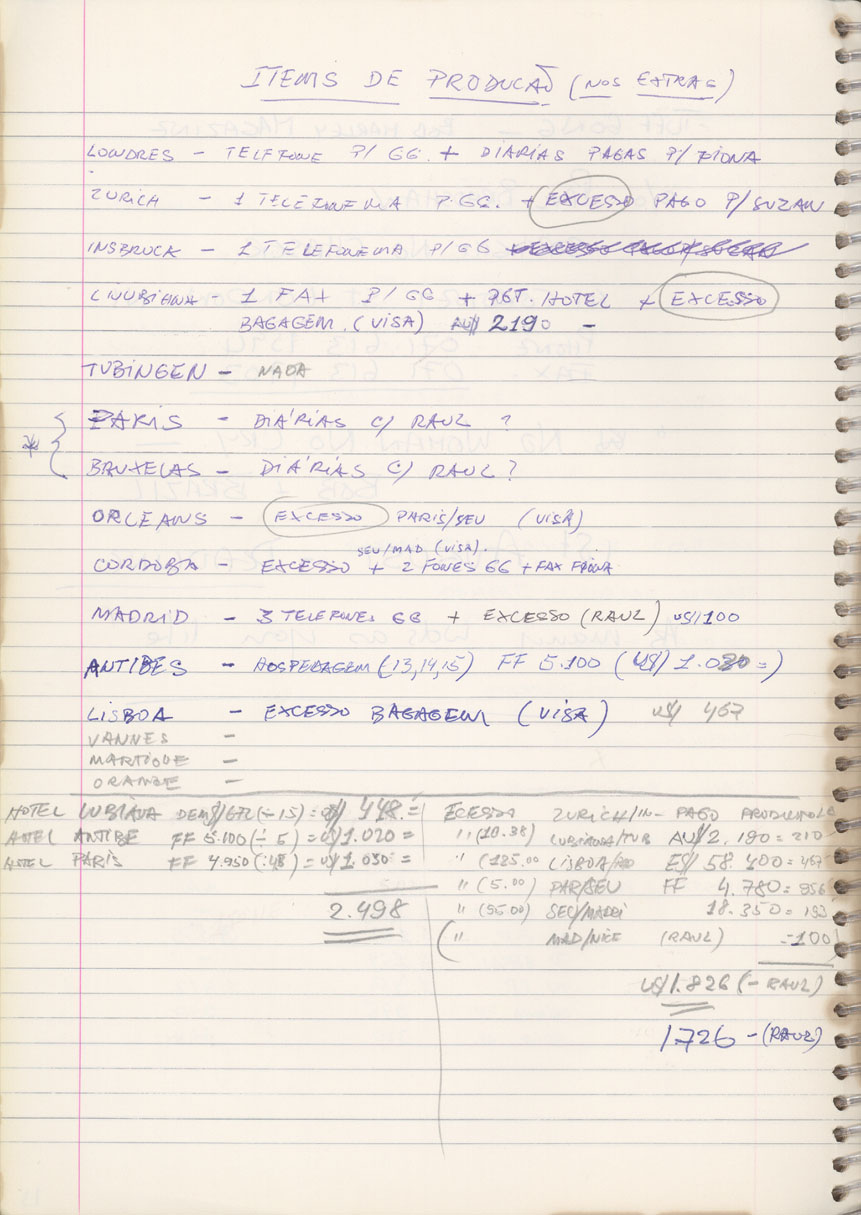 ITEMS DE PRODUCÃO (NOS EXTRAS)
LONDRES - TELEFONE P/ GG. + DIARIAS PAGAS P/ FIONA
ZURICH - 1 TELEFONEMA P. GG. + EXCESSO PAGO P/ SUZAN
INSBRUCK - 1 TELEFONEMA P/ GG
LIUBIANA - 1 FAX P/ GG + HOTEL + EXCESSO
BAGAGEM. (VISA) AU$ 2190 -
TUBINGEN - NADA
* PARIS - DIÁRIAS C/ RAUL ?
BRUXELAS - DIÁRIAS C/ RAUL ?
ORLEANS - EXCESSO PARIS/SEU (VISA)
SEV/MAD (VISA).
CORDOBA - EXCESSO + 2 FONES GG + FAX FIONA
MADRID - 3 TELEFONES GG + EXCESSO (RAUL) US$ 100
ANTIBES - HOSPEDAGEM (13,14,15) FF 5.100 (US$ 1.020 =)
LISBOA - EXCESSO BAGAGEM (VISA) US$ 467
VANNES -
MARTIGUE -
ORANGE -
HOTEL LUBIANA DEM$ 672 (÷ 15) = U$ 448. =
HOTEL ANTIBE FF 5.100 (÷ 5) = U$ 1.020 =
HOTEL PARIS FF 4.950 (:48) = U$ 1.030 =
2.498
ECESSO ZURICH/IN- PAGO PRODUTOLA
" (10.38) LUBIANA/TUB AU$ 2.190 = 210
" (125.00 LISBOA/ ES$ 58.400 = 467
" (5.00) PAR/SEU FF 4.780 = 956
" (95.00) SEU/MADRI 18.350 = 193
( " MAD/NICE (RAUL) - 100
US$ 1.826 (- RAUL)
1726 - (RAUL)